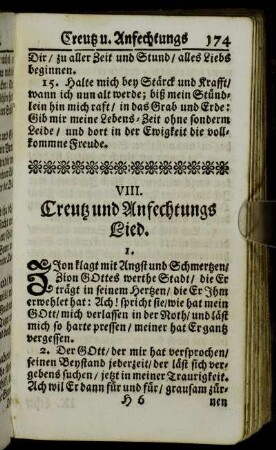 Creutz u. Anfechtungs 174
Dir/ zu aller Zeit und Stund/ alles Liebs
beginnen.
15. Halte mich bey Stärck und Krafft/
wann ich nun alt werde; biß mein Stünd-
lein hin mich raft/ in das Grab und Erde:
Gib mir meine Lebens-Zeit ohne sonderm
Leide/ und dort in der Ewigkeit die voll-
kommne Freude.
VIII.
Creutz und Anfechtungs
Lied.
1.
Zion klagt mit Angst und Schmertzen/
Zion GOttes werthe Stadt/ die Er
trägt in seinem Hertzen/ die Er Ihm
erwehlet hat: Ach! spricht sie/ wie hat mein
GOtt/ mich verlassen in der Noth/ und läst
mich so harte pressen/ meiner hat Er gantz
vergessen.
2. Der GOtt/ der mir hat versprochen/
seinen Beystand jederzeit/ der läst sich ver-
gebens suchen/ jetzt in meiner Traurigkeit.
Ach wil Er dann für und für/ grausam zür-
H 6 nen